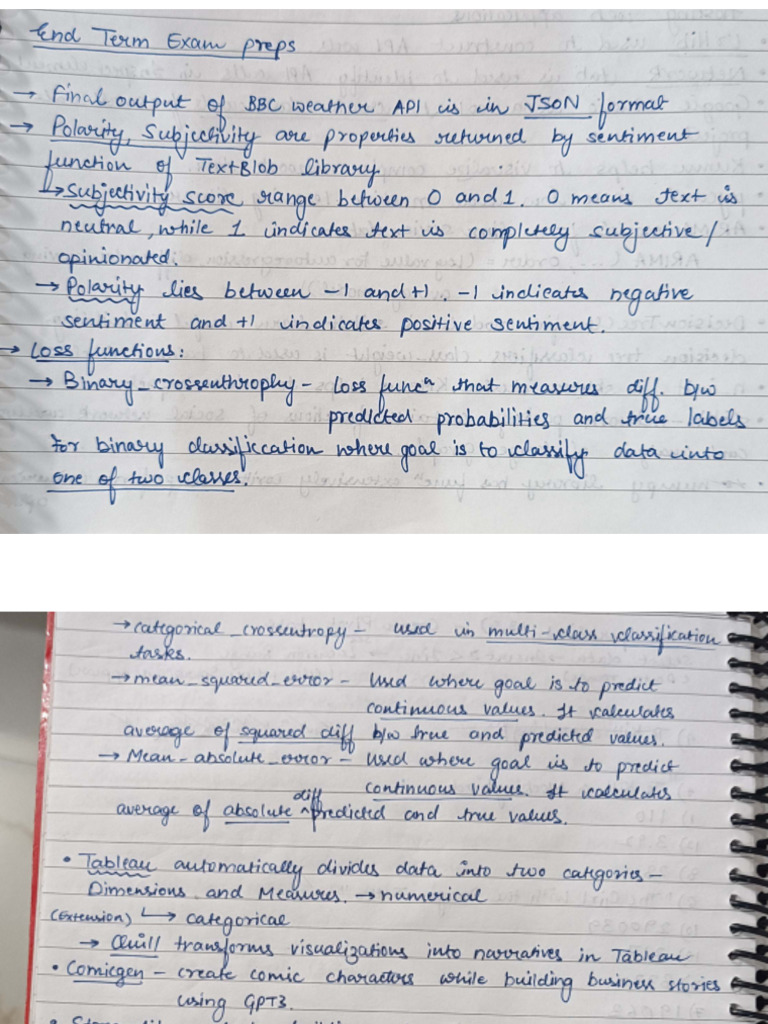 End Term Exam preps
→ Final output of BBC weather API is in JSON format
→ Polarity, Subjectivity are properties returned by sentiment
function of TextBlob library
↳ Subjectivity score range between 0 and 1. 0 means text is
neutral, while 1 indicates text is completely subjective/
opinionated.
→ Polarity lies between -1 and +1. -1 indicates negative
sentiment and +1 indicates positive sentiment.
→ Loss functions:
→ Binary_crossenthrophy - loss funcⁿ that measures diff. b/w
predicted probabilities and true labels
for binary classificcation where goal is to classify data into
one of two classes.
→ categorical_crossentropy - used in multi-class classification
tasks.
→ mean_squared_error - Used where goal is to predict
continuous values. It calculates
average of squared diff b/w true and predicted values.
→ Mean-absolute_error - Used where goal is to predict
continuous values. It calculates
average of absolute diff ^ predicted and true values.
• Tableau automatically divides data into two categories -
Dimensions and Measures. → numerical
(Extension) ↳ categorical
→ Quill transforms visualizations into narratives in Tableau
• Comicgen - create comic characters while building business stories
using GPT3.